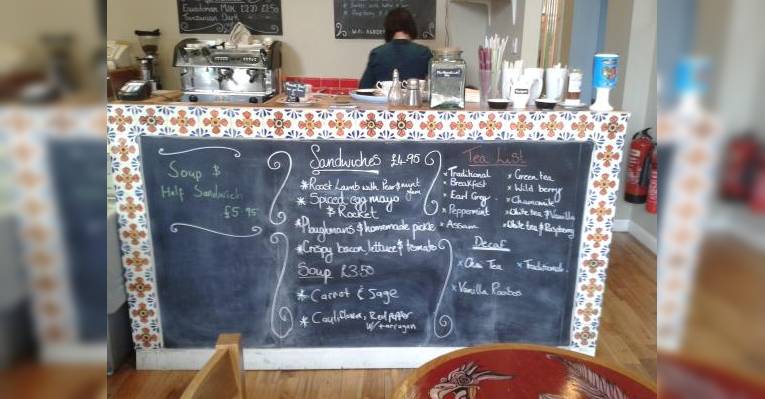 Ecuadorian Milk
£2.50
Tanzanian Dark
Soup &
Half Sandwich
£5.95
Sandwiches £4.95
* Roast Lamb with Pear & mint
jam
* Spiced egg mayo
& Rocket
* Ploughmans & homemade pickle
* Crispy bacon, lettuce & tomato
Soup £3.50
* Carrot & Sage
* Cauliflower, Red pepper
w/ tarragon
Tea List
x Traditional
Breakfast
x Earl Grey
x Peppermint
x Assam
x Green tea
x Wild berry
x Chamomile
x White tea & Vanilla
x White tea & Raspberry
Decaf
x Chai Tea
x Traditional
x Vanilla Rooibos